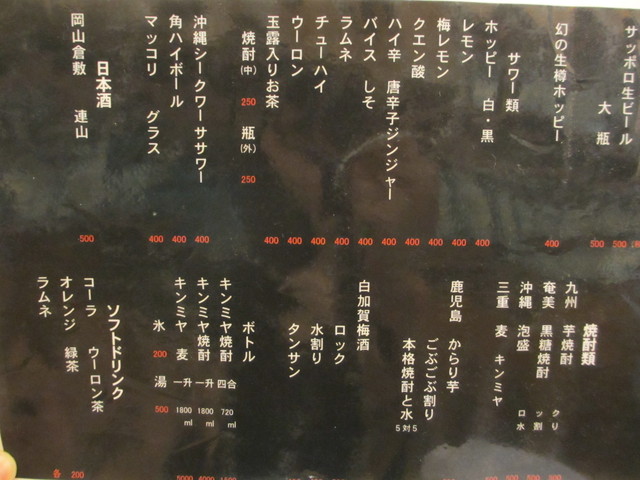 サッポロ生ビール
大瓶 500
500
幻の生樽ホッピー 400
サワー類
ホッピー 白・黒 400
レモン 400
梅レモン 400
クエン酸 400
ハイ辛 唐辛子ジンジャー 400
バイス しそ 400
ラムネ 400
チューハイ 400
ウーロン 400
玉露入りお茶 400
焼酎(中) 250 瓶(外) 250
沖縄シークワーササワー 400
角ハイボール 400
マッコリ グラス 400
日本酒
岡山倉敷 連山 500
焼酎類
九州 芋焼酎
奄美 黒糖焼酎
沖縄 泡盛
三重 麦 キンミヤ
鹿児島 からり芋
ごぶごぶ割り
本格焼酎と水
5対5
白加賀梅酒
ロック
水割り
タンサン
ボトル
キンミヤ焼酎 四合 720ml
キンミヤ焼酎 一升 1800ml
キンミヤ 麦 一升 1800ml
氷 200 湯 500
ソフトドリンク
コーラ ウーロン茶
オレンジ 緑茶
ラムネ
各 200